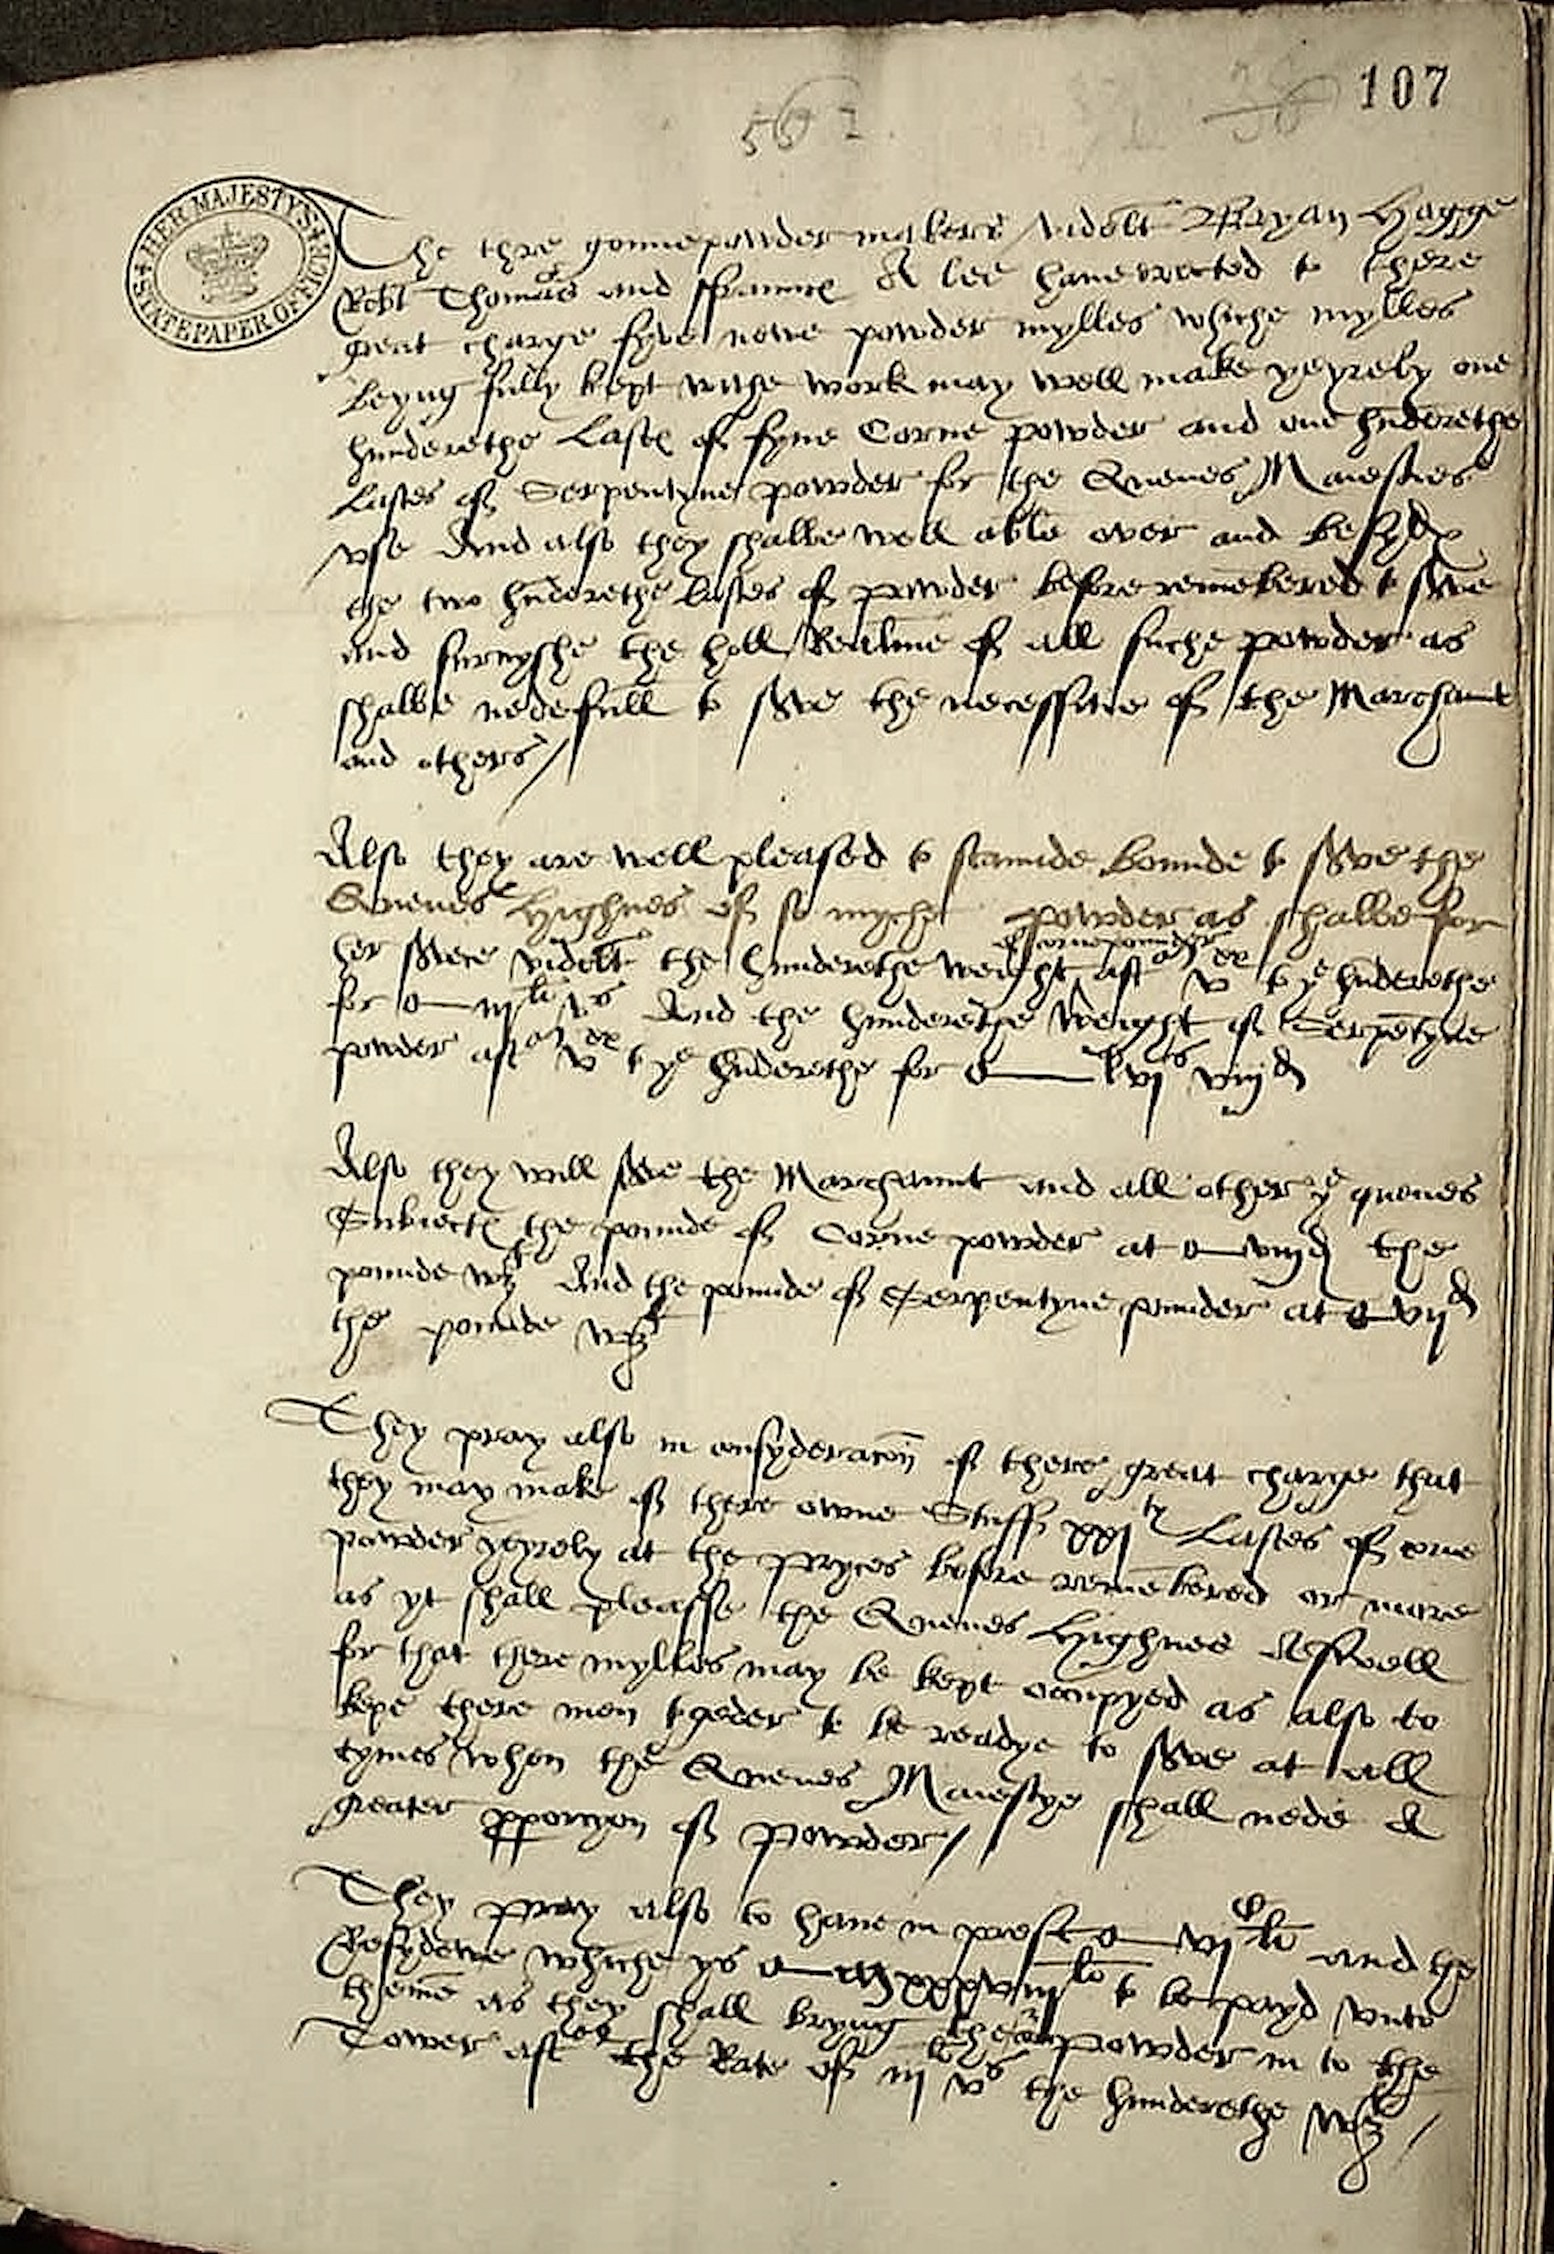 107
562
HER MAJESTY'S
STATE PAPER OFFICE
The thre gonnepowder makers videlt Bryan Hogge
Robt Thomas and ffrauncs A lee haue erected to there
great charge fyve newe powder mylles whiche mylles
beyng fully kept withe work may well make yeyrely one
hunderethe Lasts of fyne Corne powder and one hūderethe
Lastes of Serpentyne powder for the Quenes Maiesties
vse And also they shalbe well able over and besyds
the two hūderethe lastes of powder before remēbered to s've
and furnyshe the holl Realme of all suche powder as
shalbe nedefull to s've the necessitie of the Marchant
and others /
Also they are well pleased to staunde bounde to s've the
Quenes Highnes of so myche powder as shalbe for
her s'vece videlt the hunderethe weight of corne pouder aft v to ye hūderethe
for iijli vs And the hunderethe weight of Serpētyne
powder aft v to ye hūderethe for lvjs viijd
Also they will s've the Marchaunt and all other ye quenes
Subiects the pounde of Corne powder at viijd the
pounde wt And the pounde of Serpentyne pouder at vijd
the pounde wt
They pray also in consyderacōn of there great charge that
they may make of there owne Stuff xxty Lastes of corne
powder yeyrely at the pryces before remēbered or more
as yt shall pleasse the Quenes Highnes Aswell
for that there mylles may be kept occupyed as also to
kepe there men togeder to be readye to s've at all
tymes when the Quenes Maiestye shall nede A
greater pporcyon of powder /
They pray also to haue in prest vjc li and the
Resydewe whiche ys li to be payd vnto
theme as they shall bryng the powder in to the
Tower aft the Rate of iijli vs the hunderethe wt /